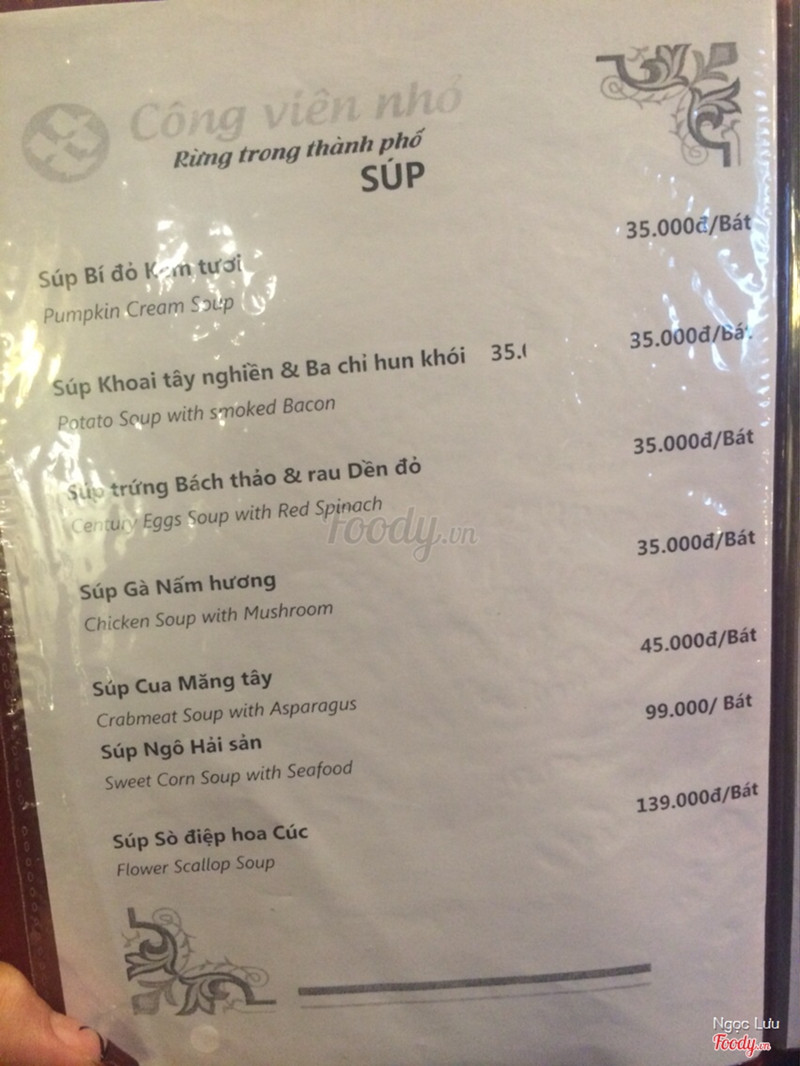 Công viên nhỏ
Rừng trong thành phố
SÚP
35.000đ/Bát
Súp Bí đỏ Kem tươi
Pumpkin Cream Soup
35.000đ/Bát
Súp Khoai tây nghiền & Ba chỉ hun khói 35.0
Potato Soup with smoked Bacon
35.000đ/Bát
Súp trứng Bách thảo & rau Dền đỏ
Century Eggs Soup with Red Spinach
Foody.vn
35.000đ/Bát
Súp Gà Nấm hương
Chicken Soup with Mushroom
45.000đ/Bát
Súp Cua Măng tây
Crabmeat Soup with Asparagus
99.000/ Bát
Súp Ngô Hải sản
Sweet Corn Soup with Seafood
139.000đ/Bát
Súp Sò điệp hoa Cúc
Flower Scallop Soup
Ngọc Lưu
Foody.vn